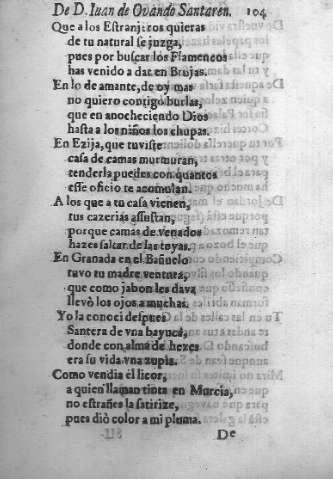 De D. Iuan de Ovando Santaren. 104
Que a los Estranjeros quieras
de tu natural se juzga,
pues por buscar los Flamencos
has venido a dar en Brujas.
En lo de amante, de oy mas
no quiero contigo burlas,
que en anocheciendo Dios
hasta a los niños los chupas.
En Ezija, que tuviste
casa de camas murmuran,
tenderla puedes con quantos
este oficio te acomulan.
A los que a tu casa vienen,
tus cazerias assustan,
porque camas de venados
hazes saltar de las tuyas.
En Granada en el Bañuelo
tuvo tu madre ventura,
que como jabon les dava
llevò los ojos a muchas.
Yo la conoci despues
Santera de vna bayuca,
donde con alma de hezes
era su vida vna zupia.
Como vendia el licor,
a quien llaman tinta en Murcia,
no estrañes la satirize,
pues diò color a mi pluma.
De